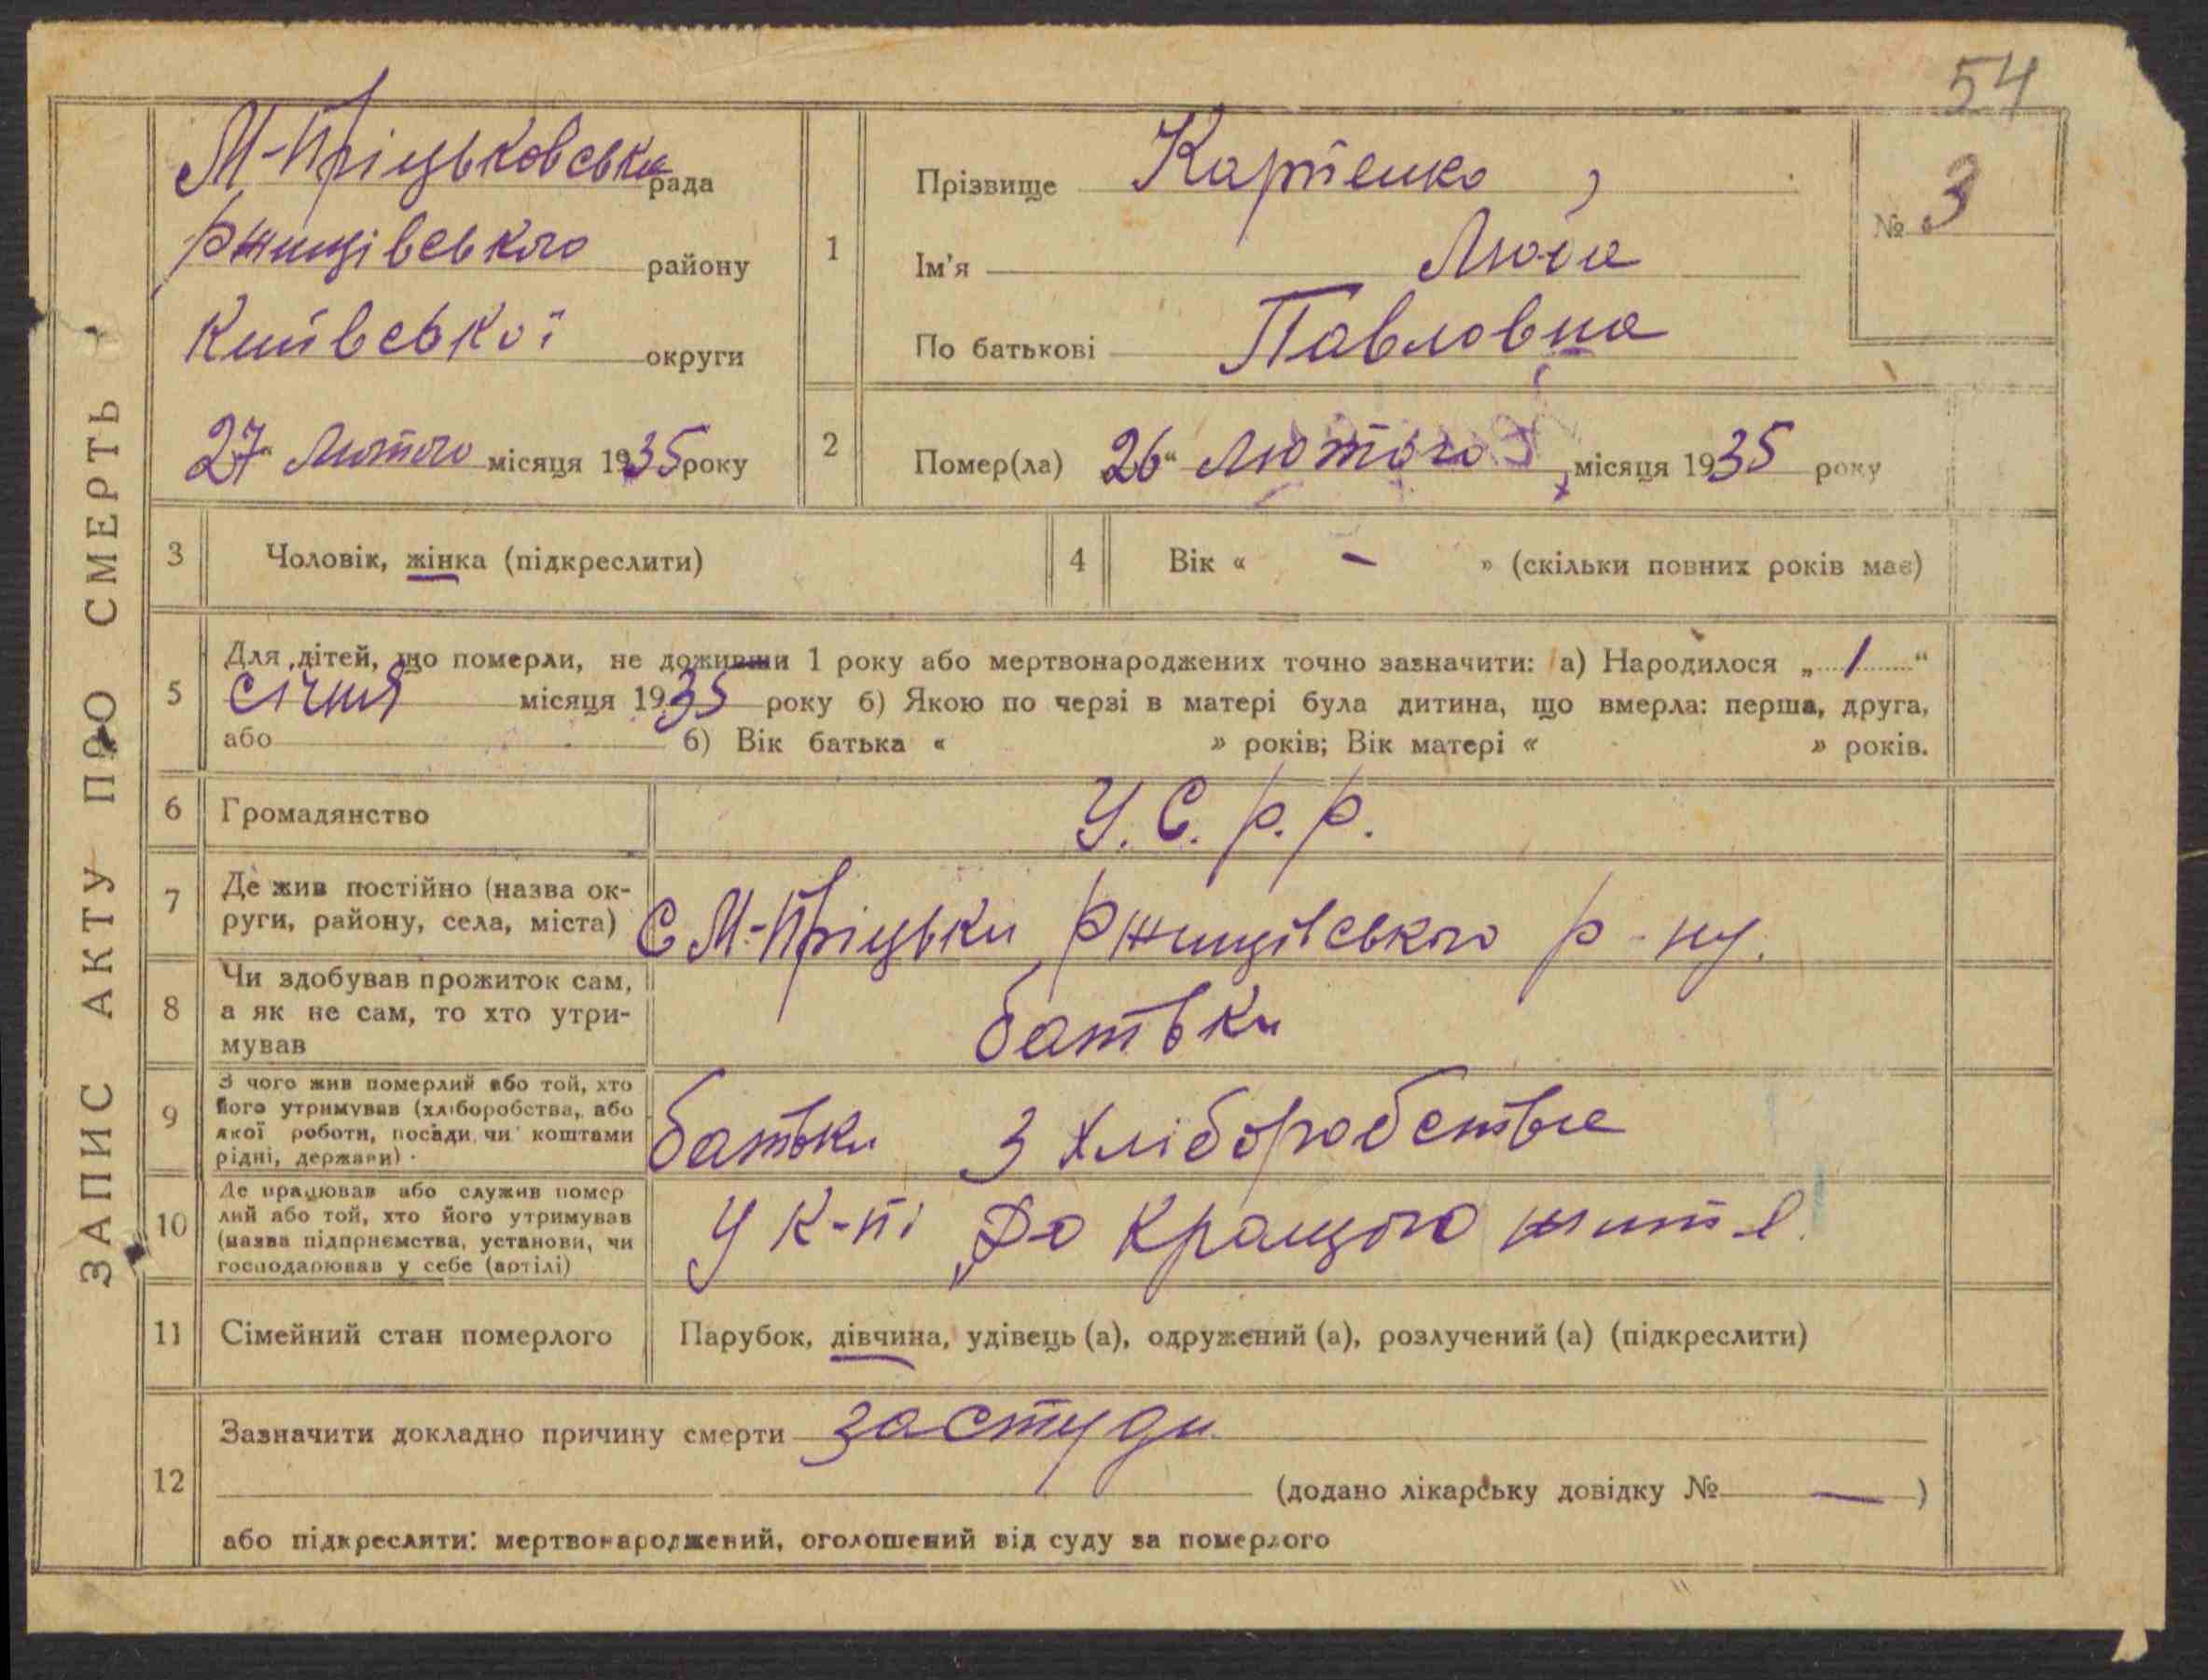 54
ЗАПИС АКТУ ПРО СМЕРТЬ
М-Пріцьковська рада
Ржищівського району
Київської округи
27" Лютого місяця 1935 року
1
Прізвище Карпенко,
Ім'я Люба
По батькові Павловна
№ 3
2
Помер(ла) 26" Лютого місяця 1935 року
3
Чоловік, жінка (підкреслити)
4
Вік « - » (скільки повних років має)
5
Для дітей, що померли, не доживши 1 року або мертвонароджених точно зазначити: а) Народилося „ 1 “
січня місяця 1935 року б) Якою по черзі в матері була дитина, що вмерла: перша, друга,
або б) Вік батька « » років; Вік матері « » років.
6
Громадянство
У.С.р.р.
7
Де жив постійно (назва ок-
руги, району, села, міста)
С М.-Пріцьки Ржищівського р-ну.
8
Чи здобував прожиток сам,
а як не сам, то хто утри-
мував
батьки
9
З чого жив померлий або той, хто
його утримував (хліборобства, або
якої роботи, посади чи коштами
рідні, держави)
батьки з хліборобства
10
Де працював або служив помер
лий або той, хто його утримував
(назва підприємства, установи, чи
господарював у себе (артілі)
У к-пі „До кращого життя.
11
Сімейний стан померлого
Парубок, дівчина, удівець (а), одружений (а), розлучений (а) (підкреслити)
12
Зазначити докладно причину смерти застуди
(додано лікарську довідку № — )
або підкреслити: мертвонароджений, оголошений від суду за померлого